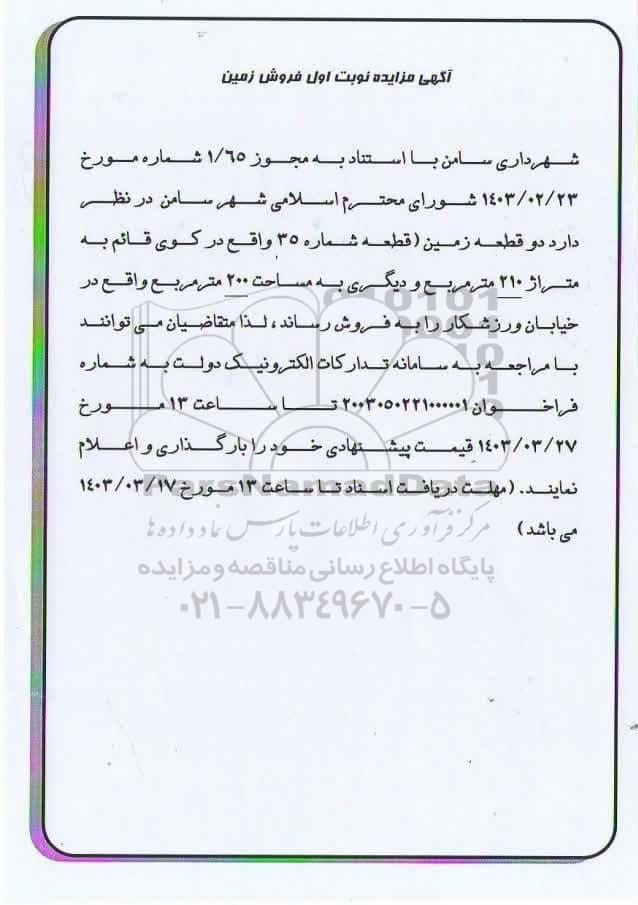 آگهی مزایده نوبت اول فروش زمین
شهرداری سامن با استناد به مجوز ۱/۶۵ شماره مورخ
۱۴۰۳/۰۲/۲۳ شورای محترم اسلامی شهر سامن در نظر
دارد دو قطعه زمین (قطعه شماره ۳۵ واقع در کوی قائم به
متراژ ۲۱۰ مترمربع و دیگری به مساحت ۲۰۰ مترمربع واقع در
خیابان ورزشکار را به فروش رساند، لذا متقاضیان می توانند
با مراجعه به سامانه تدارکات الکترونیک دولت به شماره
فراخوان ۲۰۰۳۰۵۰۲۲۱۰۰۰۰۰۱ تا ساعت ۱۳ مورخ
۱۴۰۳/۰۳/۲۷ قیمت پیشنهادی خود را بارگذاری و اعلام
نمایند. (مهلت دریافت اسناد تا ساعت ۱۳ مورخ ۱۴۰۳/۰۳/۱۷
می باشد)
ParsNamadData
مرکز فرآوری اطلاعات پارس نماد داده ها
پایگاه اطلاع رسانی مناقصه و مزایده
۰۲۱-۸۸۳۴۹۶۷۰-۵